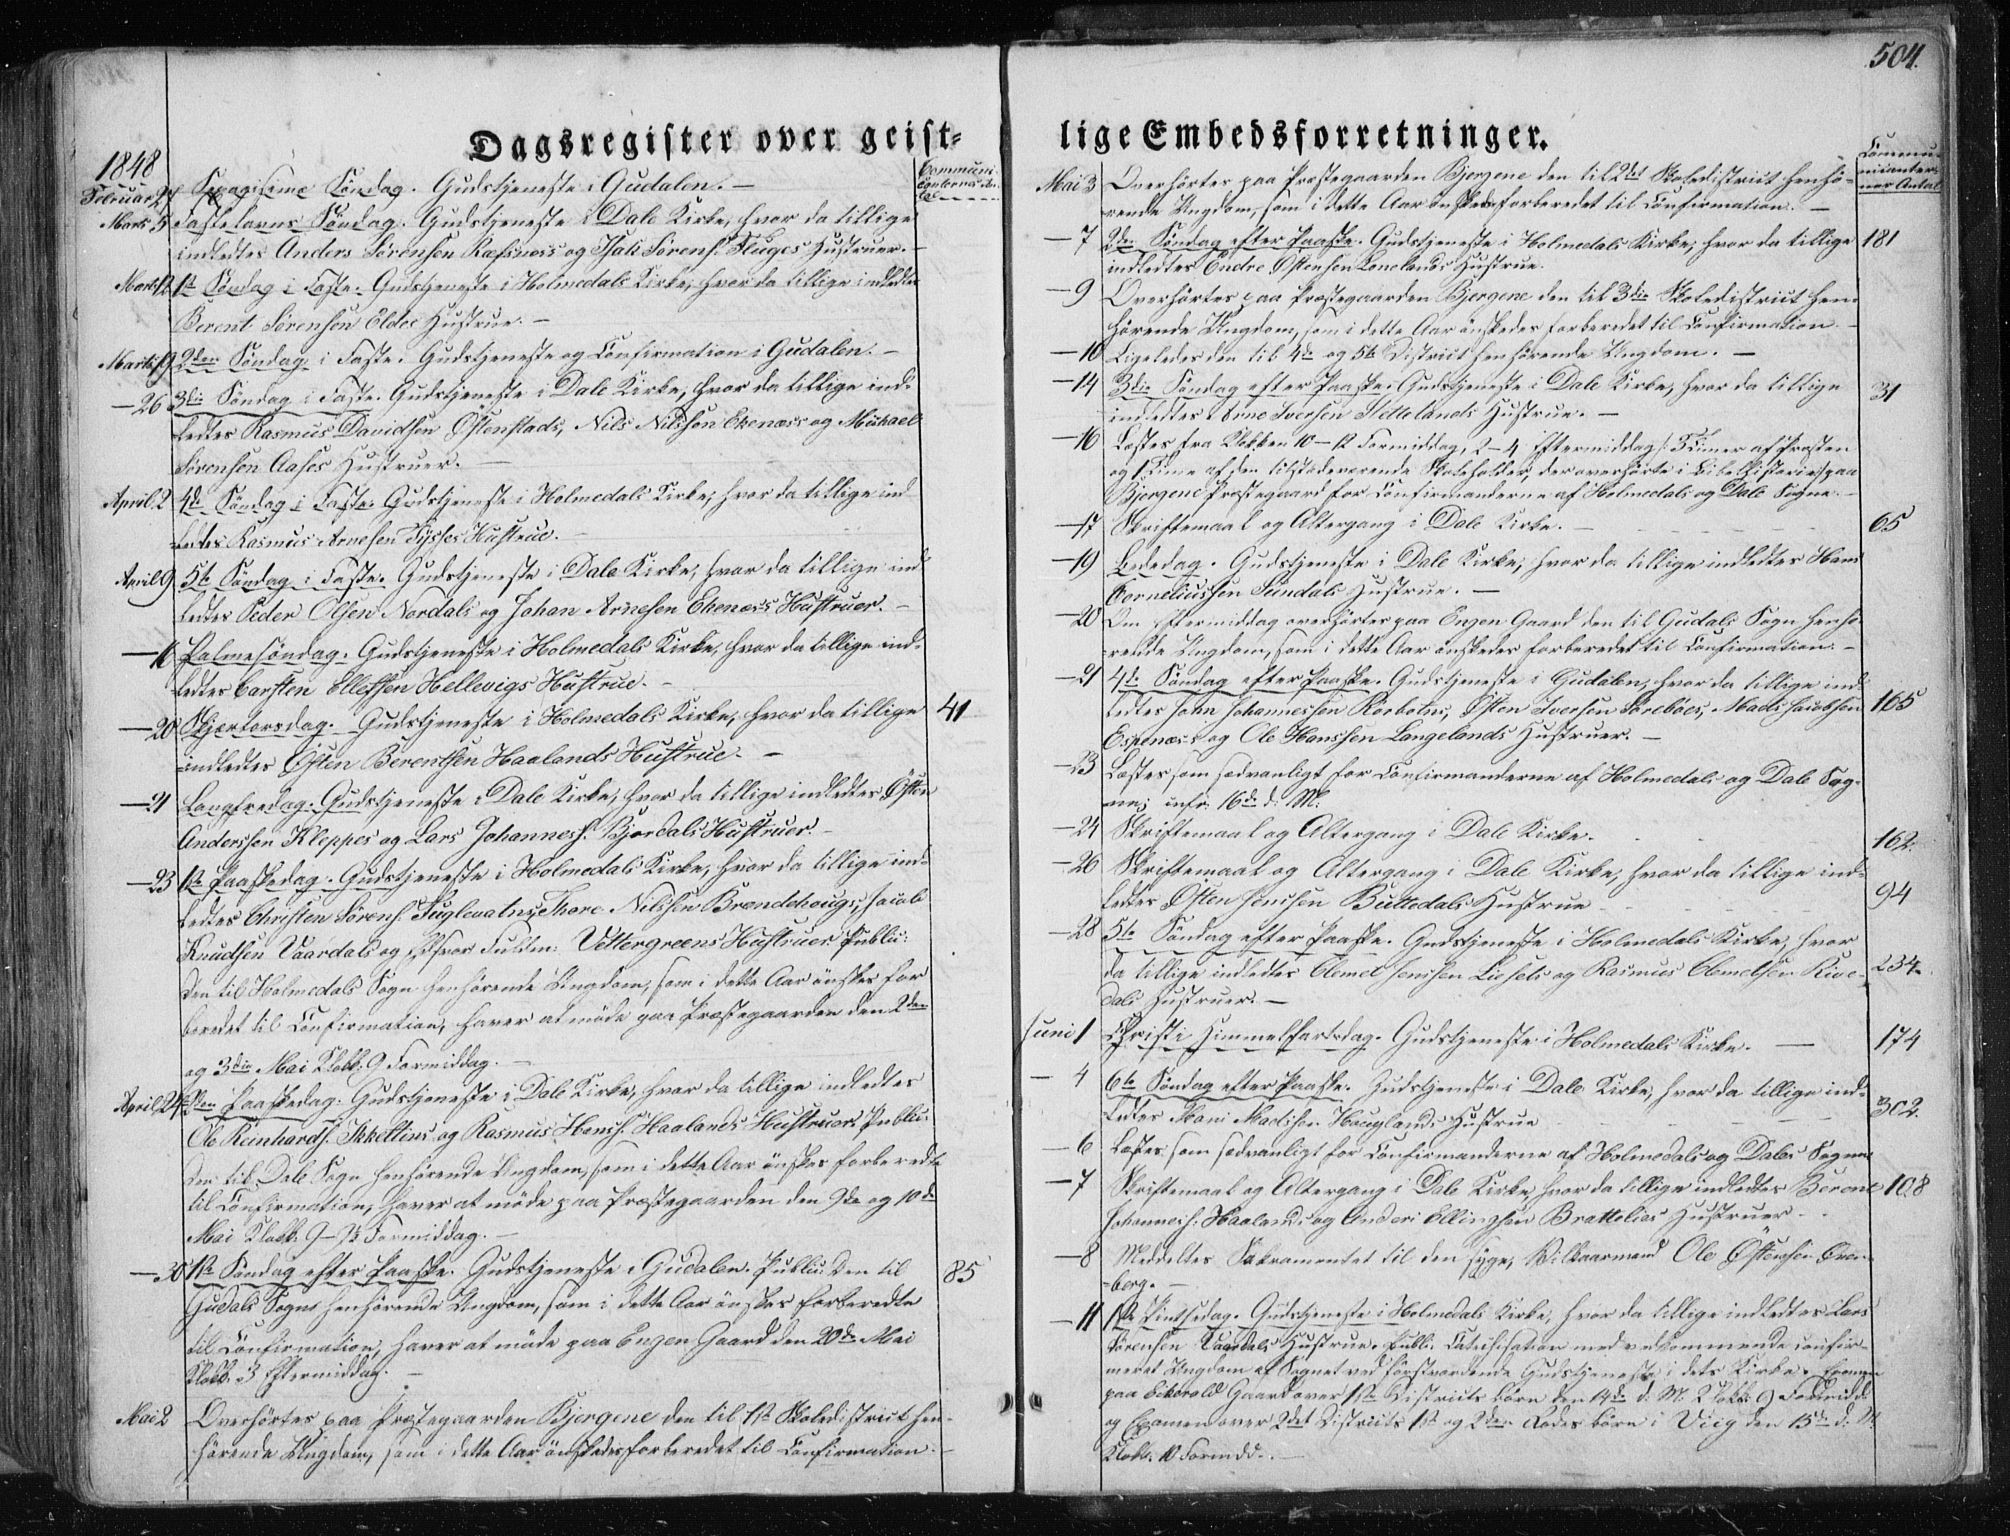 504.
Dagsregister over geist-
1848
Communi-
canternes An-
tal
Februar 27 Sexagisime Søndag. Gudstjeneste i Gudalen. —
Marts 5 Fastelavns Søndag. Gudstjeneste i Dale Kirke, hvor da tillige
indledtes Anders Sørensen Rafsnæss og Hals Sørens. Fluges Hustruer. —
Marts 12 1ste Søndag i Faste. Gudstjeneste i Holmedals Kirke, hvor da tillige indledtes
Berent Sørensen Eldes Hustrue. —
Marts 19 2den Søndag i Faste. Gudstjeneste og Confirmation i Gudalen. —
— 26 3die Søndag i Faste. Gudstjeneste i Dale Kirke, hvor da tillige ind-
ledtes Rasmus Davidsen Østenstads, Nils Nilssen Ekenæss og Michael
Sørensen Aases Hustruer. —
April 2 4de Søndag i Faste. Gudstjeneste i Holmedals Kirke, hvor da tillige ind-
ledtes Rasmus Arnesen Tysses Hustrue. —
April 9 5te Søndag i Faste. Gudstjeneste i Dale Kirke, hvor da tillige ind
ledtes Peder Olsen Nordals og Johan Arnesen Ekenæss Hustruer. —
— 16 Palmesøndag. Gudstjeneste i Holmedals Kirke, hvor da tillige ind-
ledtes Carsten Ellefsen Hellevigs Hustrue. —
— 20 Skjærtorsdag. Gudstjeneste i Holmedals Kirke, hvor da tillige 41
indledtes Østen Berentsen Haalands Hustrue. —
— 21 Langfredag. Gudstjeneste i Dale Kirke, hvor da tillige indledtes Østen
Anderssen Kleppes og Lars Johanness. Bjordals Hustruer. —
— 23 1ste Paaskedag. Gudstjeneste i Holmedals Kirke, hvor da tillige ind-
ledtes Christen Sørens. Fuglevatns, Thore Nilssen Brændehougs, Jacob
Knudsen Vaardals og Vettergreens Hustruer. Public:
den til Holmedals Sogn henhørende Ungdom, som i dette Aar ønskes for
beredet til Confirmation, haver at møde paa Præstegaarden den 2den
og 3die Mai Klokk: 9 Formiddag. —
April 24 2den Paaskedag. Gudstjeneste i Dale Kirke, hvor da tillige indledtes
Ole Reinhards. Ikkellins og Rasmus Hanss. Haalands Hustruer. Public:
den til Dale Sogn henhørende Ungdom, som i dette Aar ønskes forberedte
til Confirmation, haver at møde paa Præstegaarden den 9de og 10de
Mai Klokk: 9 Formiddag. —
— 30 1ste Søndag efter Paaske. Gudstjeneste i Gudalen. Public: den til 85
Gudals Sogn henhørende Ungdom, som i dette Aar ønskes forberedte
til Confirmation, haver at møde paa Engen Gaard den 20de Mai
Klokk: 3 Eftermiddag. —
Mai 2 Overhørtes paa Præstegaarden Bjergene den til 1ste Skoledistrict hen-
hørende Ungdom, som i dette Aar ønskedes forberedet til Confirmation. —
lige Embedsforretninger.
Commu-
nicanter-
nes Antal
Mai 3 Overhørtes paa Præstegaarden Bjergene den til 2det Skoledistrict henhø-
rende Ungdom, som i dette Aar ønskedes forberedet til Confirmation. —
— 7 2den Søndag efter Paaske. Gudstjeneste i Holmedals Kirke, hvor da tillige 181
indledtes Endre Østensen Lonelands Hustrue.
— 9 Overhørtes paa Præstegaarden Bjergene den til 3die Skoledistrict hen-
hørende Ungdom, som i dette Aar ønskedes forberedet til Confirmation. —
— 10 Ligeledes den til 4de og 5te District henhørende Ungdom. —
— 14 3die Søndag efter Paaske. Gudstjeneste i Dale Kirke, hvor da tillige 31
indledtes Arne Iversen Nettelands Hustrue. —
— 16 Læstes fra Klokken 10 - 12 Formiddag, 2 - 4 Eftermiddag (3 Timer af Præsten
og 1 Time af den tilstædeværende Skoleholder, der overhørte i Bibelhistorie) paa
Bjergene Præstegaard for Confirmanderne af Holmedals og Dale Sogne. —
— 17 Skriftemaal og Altergang i Dale Kirke. — 65
— 19 Bededag. Gudstjeneste i Dale Kirke, hvor da tillige indledtes Hans
Corneliussen Sundals Hustrue. —
— 20 Om Eftermiddag overhørtes paa Engen Gaard den til Gudals Sogn henhø-
rende Ungdom, som i dette Aar ønskedes forberedet til Confirmation. —
— 21 4de Søndag efter Paaske. Gudstjeneste i Gudalen, hvor da tillige ind-
ledtes John Johannessen Rørbotns, Østen Iversen Sørebøes, Mads Jacobsen 165
Espenæs og Ole Hanssen Langelands Hustruer. —
— 23 Læstes som sædvanligt for Confirmanderne af Holmedals og Dale Sog-
ne; infr. 16de d. M.
— 24 Skriftemaal og Altergang i Dale Kirke. 162.
— 26 Skriftemaal og Altergang i Dale Kirke, hvor da tillige ind-
ledtes Østen Jenssen Buttedals Hustrue 94
— 28 5te Søndag efter Paaske. Gudstjeneste i Holmedals Kirke, hvor
da tillige indledtes Clemet Jenssen Liosets og Rasmus Clemetsen Rive- 234.
dals Hustruer. —
Juni 1 Christi Himmelfartsdag. Gudstjeneste i Holmedals Kirke. — 174
— 4 6te Søndag efter Paaske. Gudstjeneste i Dale Kirke, hvor da tillige ind-
ledtes Mons Madssen Houglands Hustrue 302.
— 6 Læstes som sædvanligt for Confirmanderne af Holmedals og Dales Sogne
— 7 Skriftemaal og Altergang i Dale Kirke, hvor da tillige indledtes Berent 108
Johanness. Haalands og Anders Ellingsen Brattelies Hustruer. —
— 8 Meddeltes Sakramentet til den syge, Vilkaarmand Ole Østensen Øren-
berg. —
— 11 1ste Pintsedag. Gudstjeneste i Holmedals Kirke, hvor da tillige indledtes Lars
Sørensen Vaardals Hustrue. Public: Catechisation med vedkommende confir-
meret Ungdom af Sognet ved førstvordende Gudstjeneste i dets Kirke. Examen
paa Eikevold Gaard over 1ste Districts børn den 14de d. M. Klokk: 9 Formidd.
og Examen over 2det Districts 1ste og 2den Rodes børn i Viig den 15de d. M.
Klokk. 10 Formdd. —